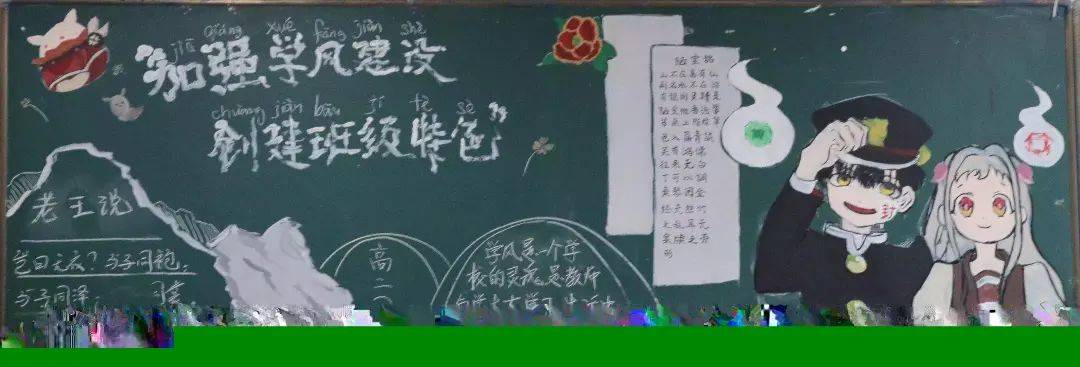 jiā qiáng xué fāng jiàn shè
“加强学风建设
chuàng jiàn bān jí tè sè
创建班级特色”
老王说
岂曰无衣?与子同袍。
与子同泽,
高二
学风是一个学
校的灵魂,是教师
与学生在学习
陋室铭
山不在高有仙
则名水不在深
有龙则灵斯是
陋室惟吾德馨
苔痕上阶绿草
色入帘青谈
笑有鸿儒
往来无白
丁可以调
素琴阅金
经无丝竹
之乱耳无
案牍之劳
形